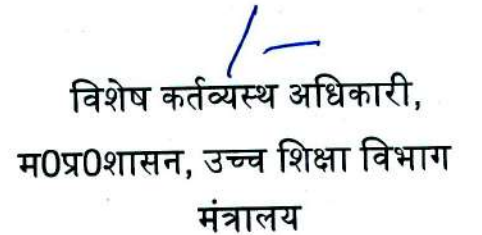 विशेष कर्तव्यस्थ अधिकारी,
म0प्र0शासन, उच्च शिक्षा विभाग
मंत्रालय